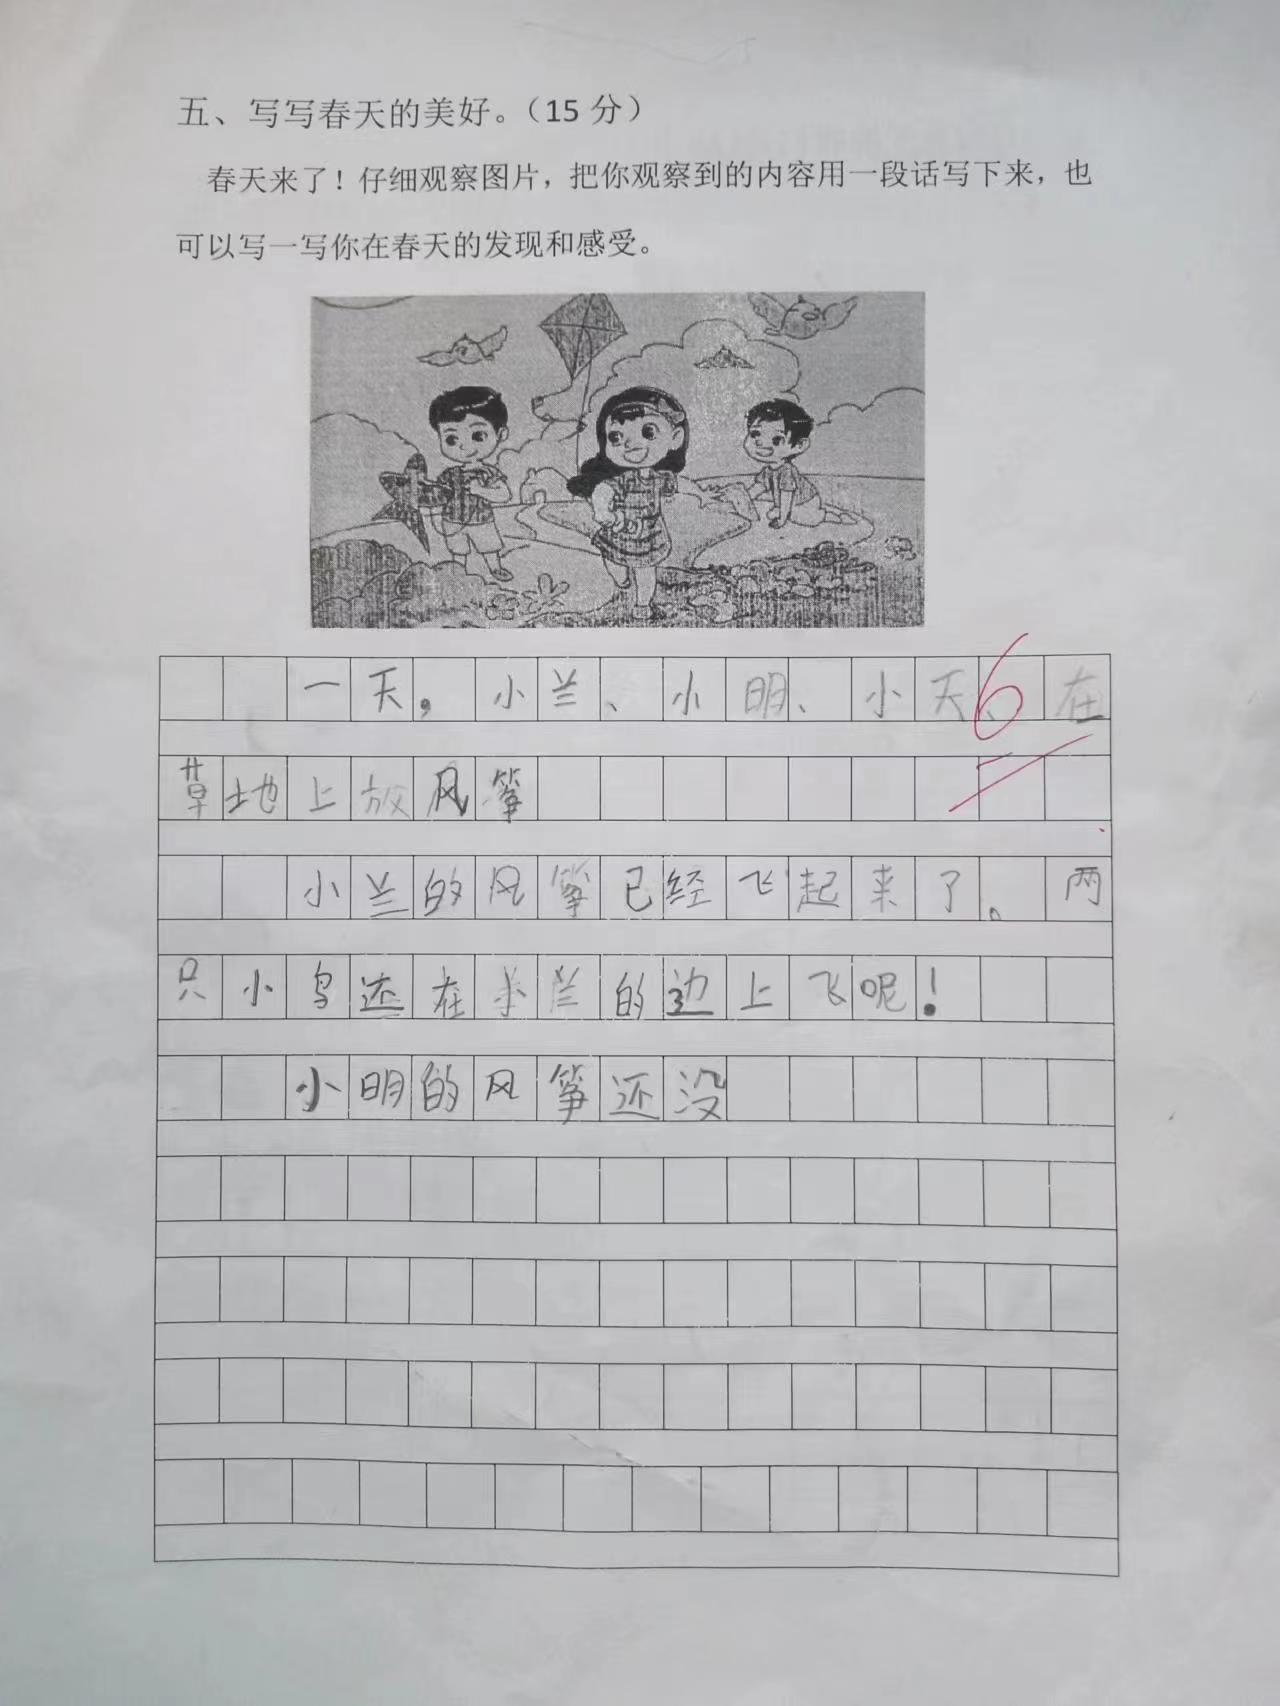 五、写写春天的美好。（15 分）
春天来了！仔细观察图片，把你观察到的内容用一段话写下来，也
可以写一写你在春天的发现和感受。
6
一天，小兰、小明、小天、在
草地上放风筝
小兰的风筝已经飞起来了。两
只小鸟还在小兰的边上飞呢！
小明的风筝还没